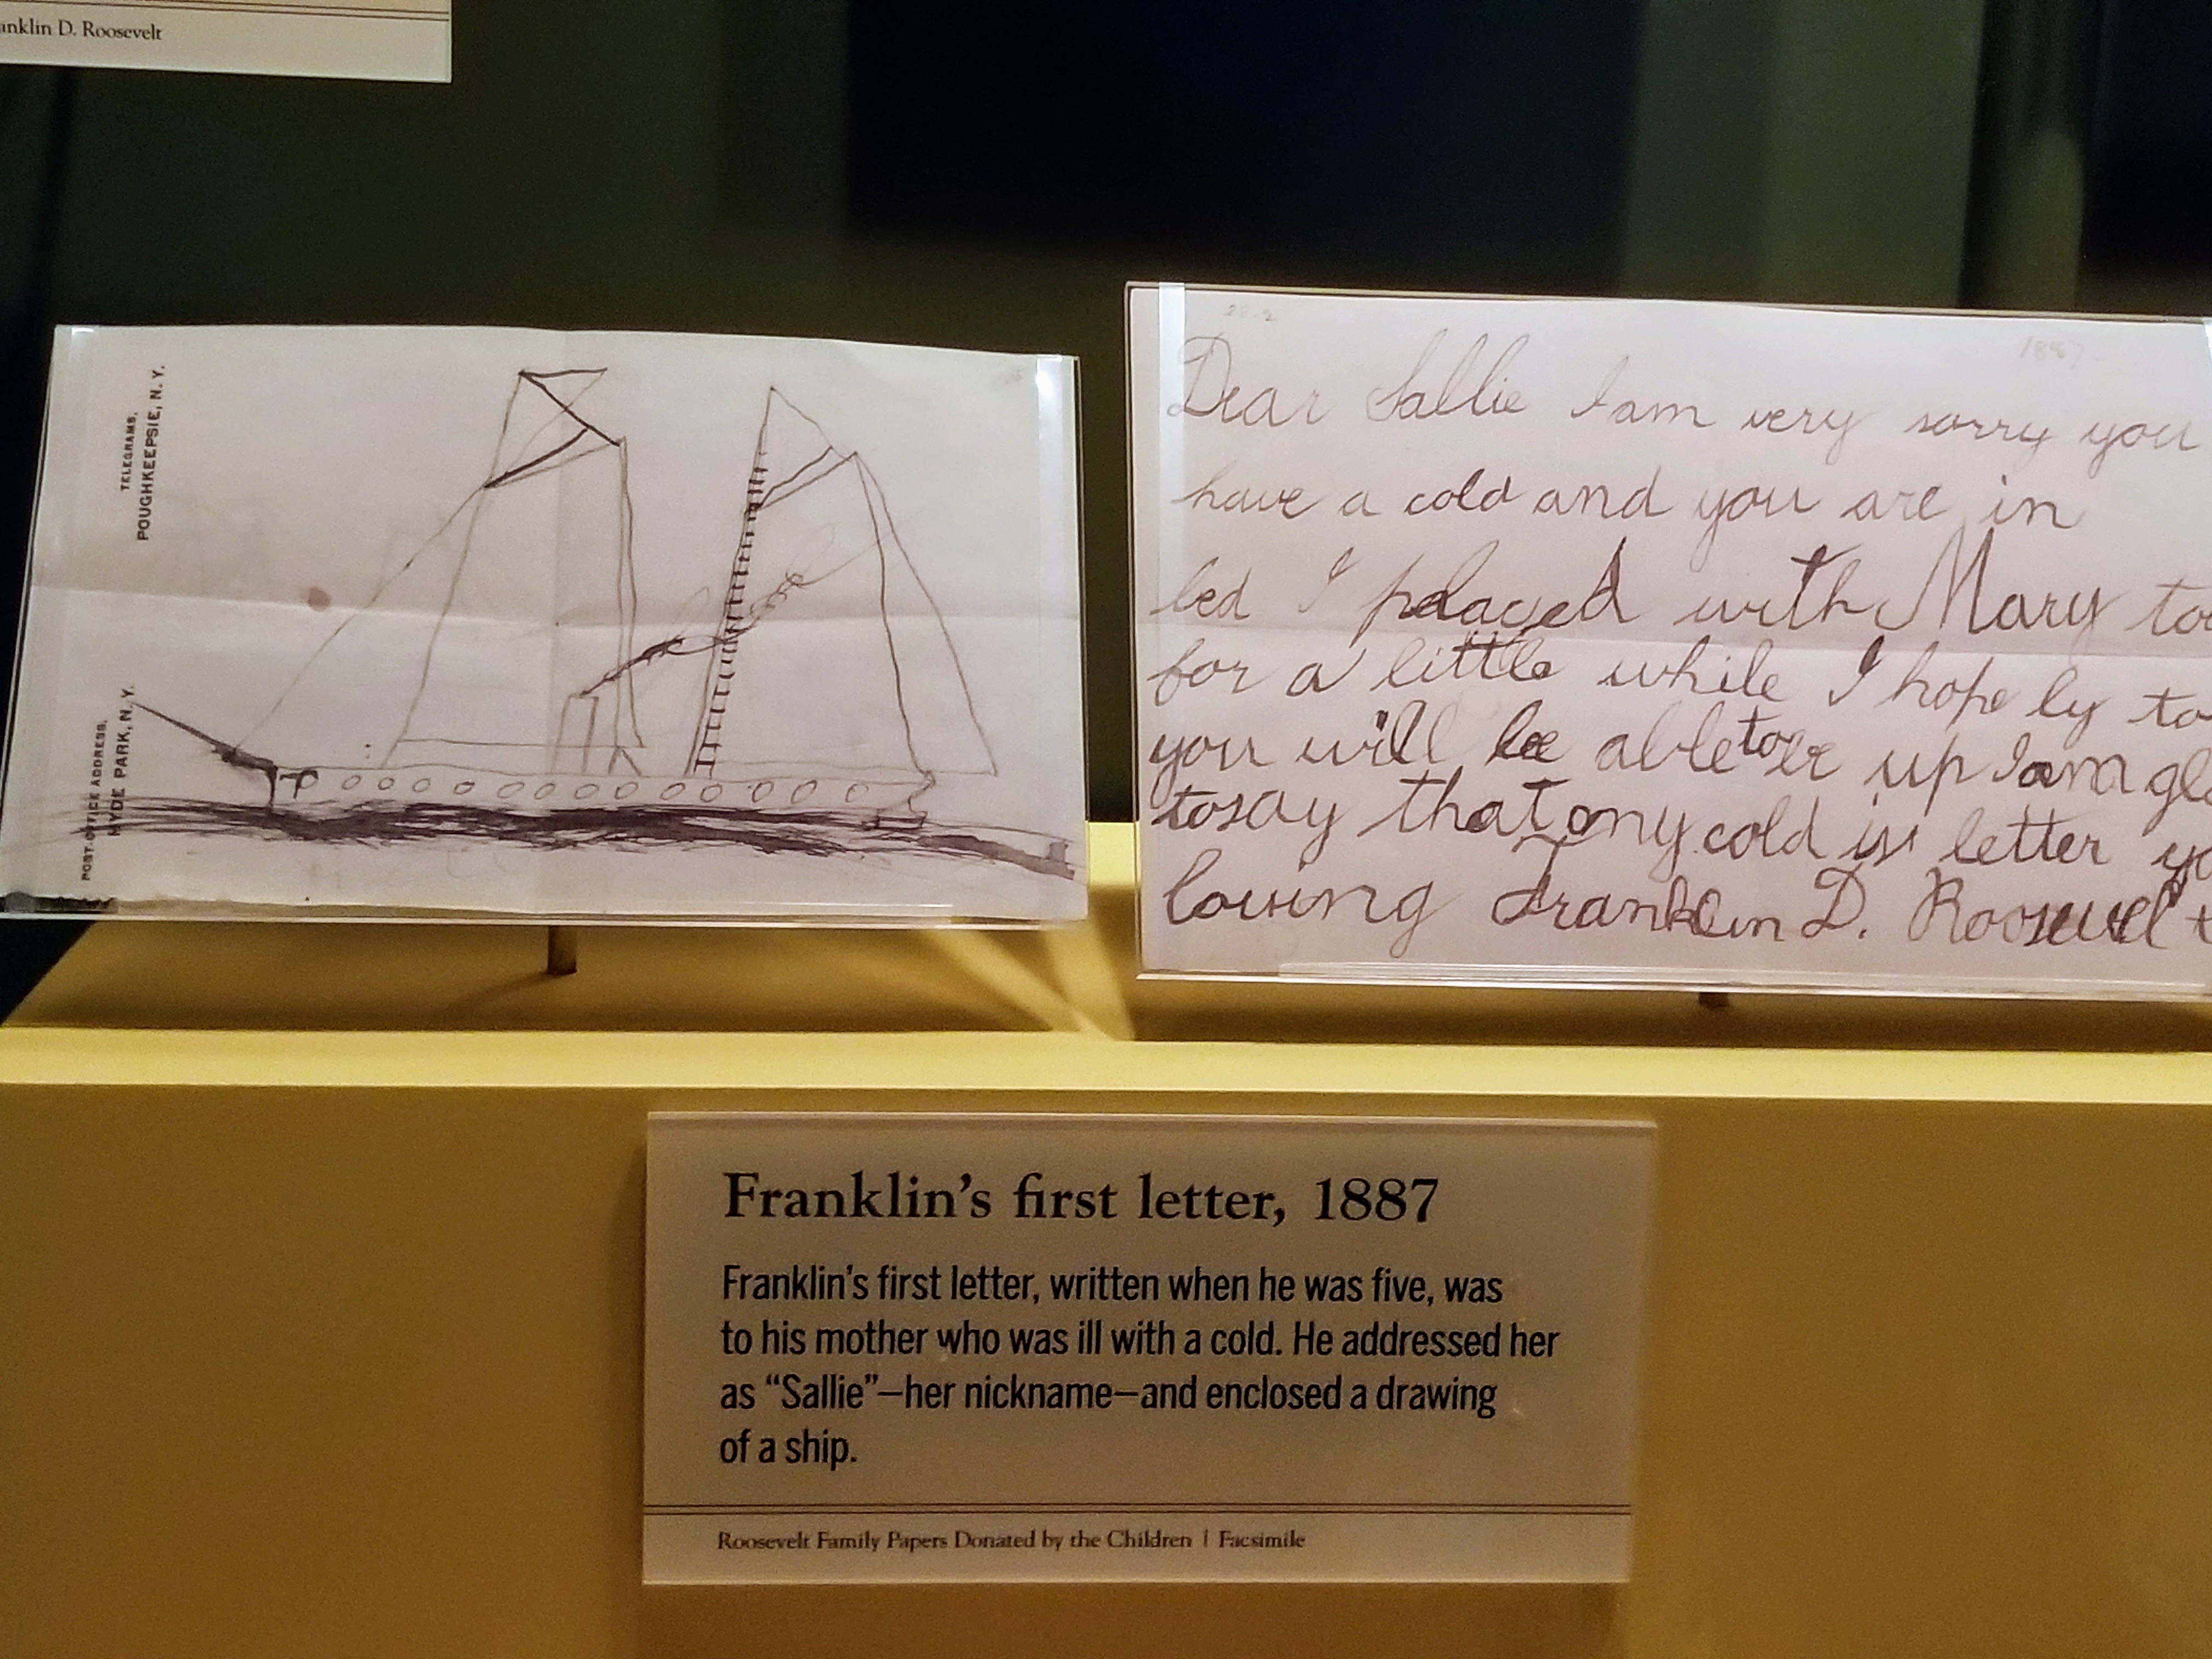 anklin D. Roosevelt
TELEGRAMS,
POUGHKEEPSIE, N. Y.
POST-OFFICE ADDRESS,
HYDE PARK, N. Y.
1887
Dear Sallie I am very sorry you
have a cold and you are in
bed I played with Mary to
for a little while I hope by to
you will be able to be up I am gla
to say that my cold is better yo
loving Franklin D. Roosevelt
Franklin's first letter, 1887
Franklin's first letter, written when he was five, was
to his mother who was ill with a cold. He addressed her
as “Sallie”—her nickname—and enclosed a drawing
of a ship.
Roosevelt Family Papers Donated by the Children | Facsimile